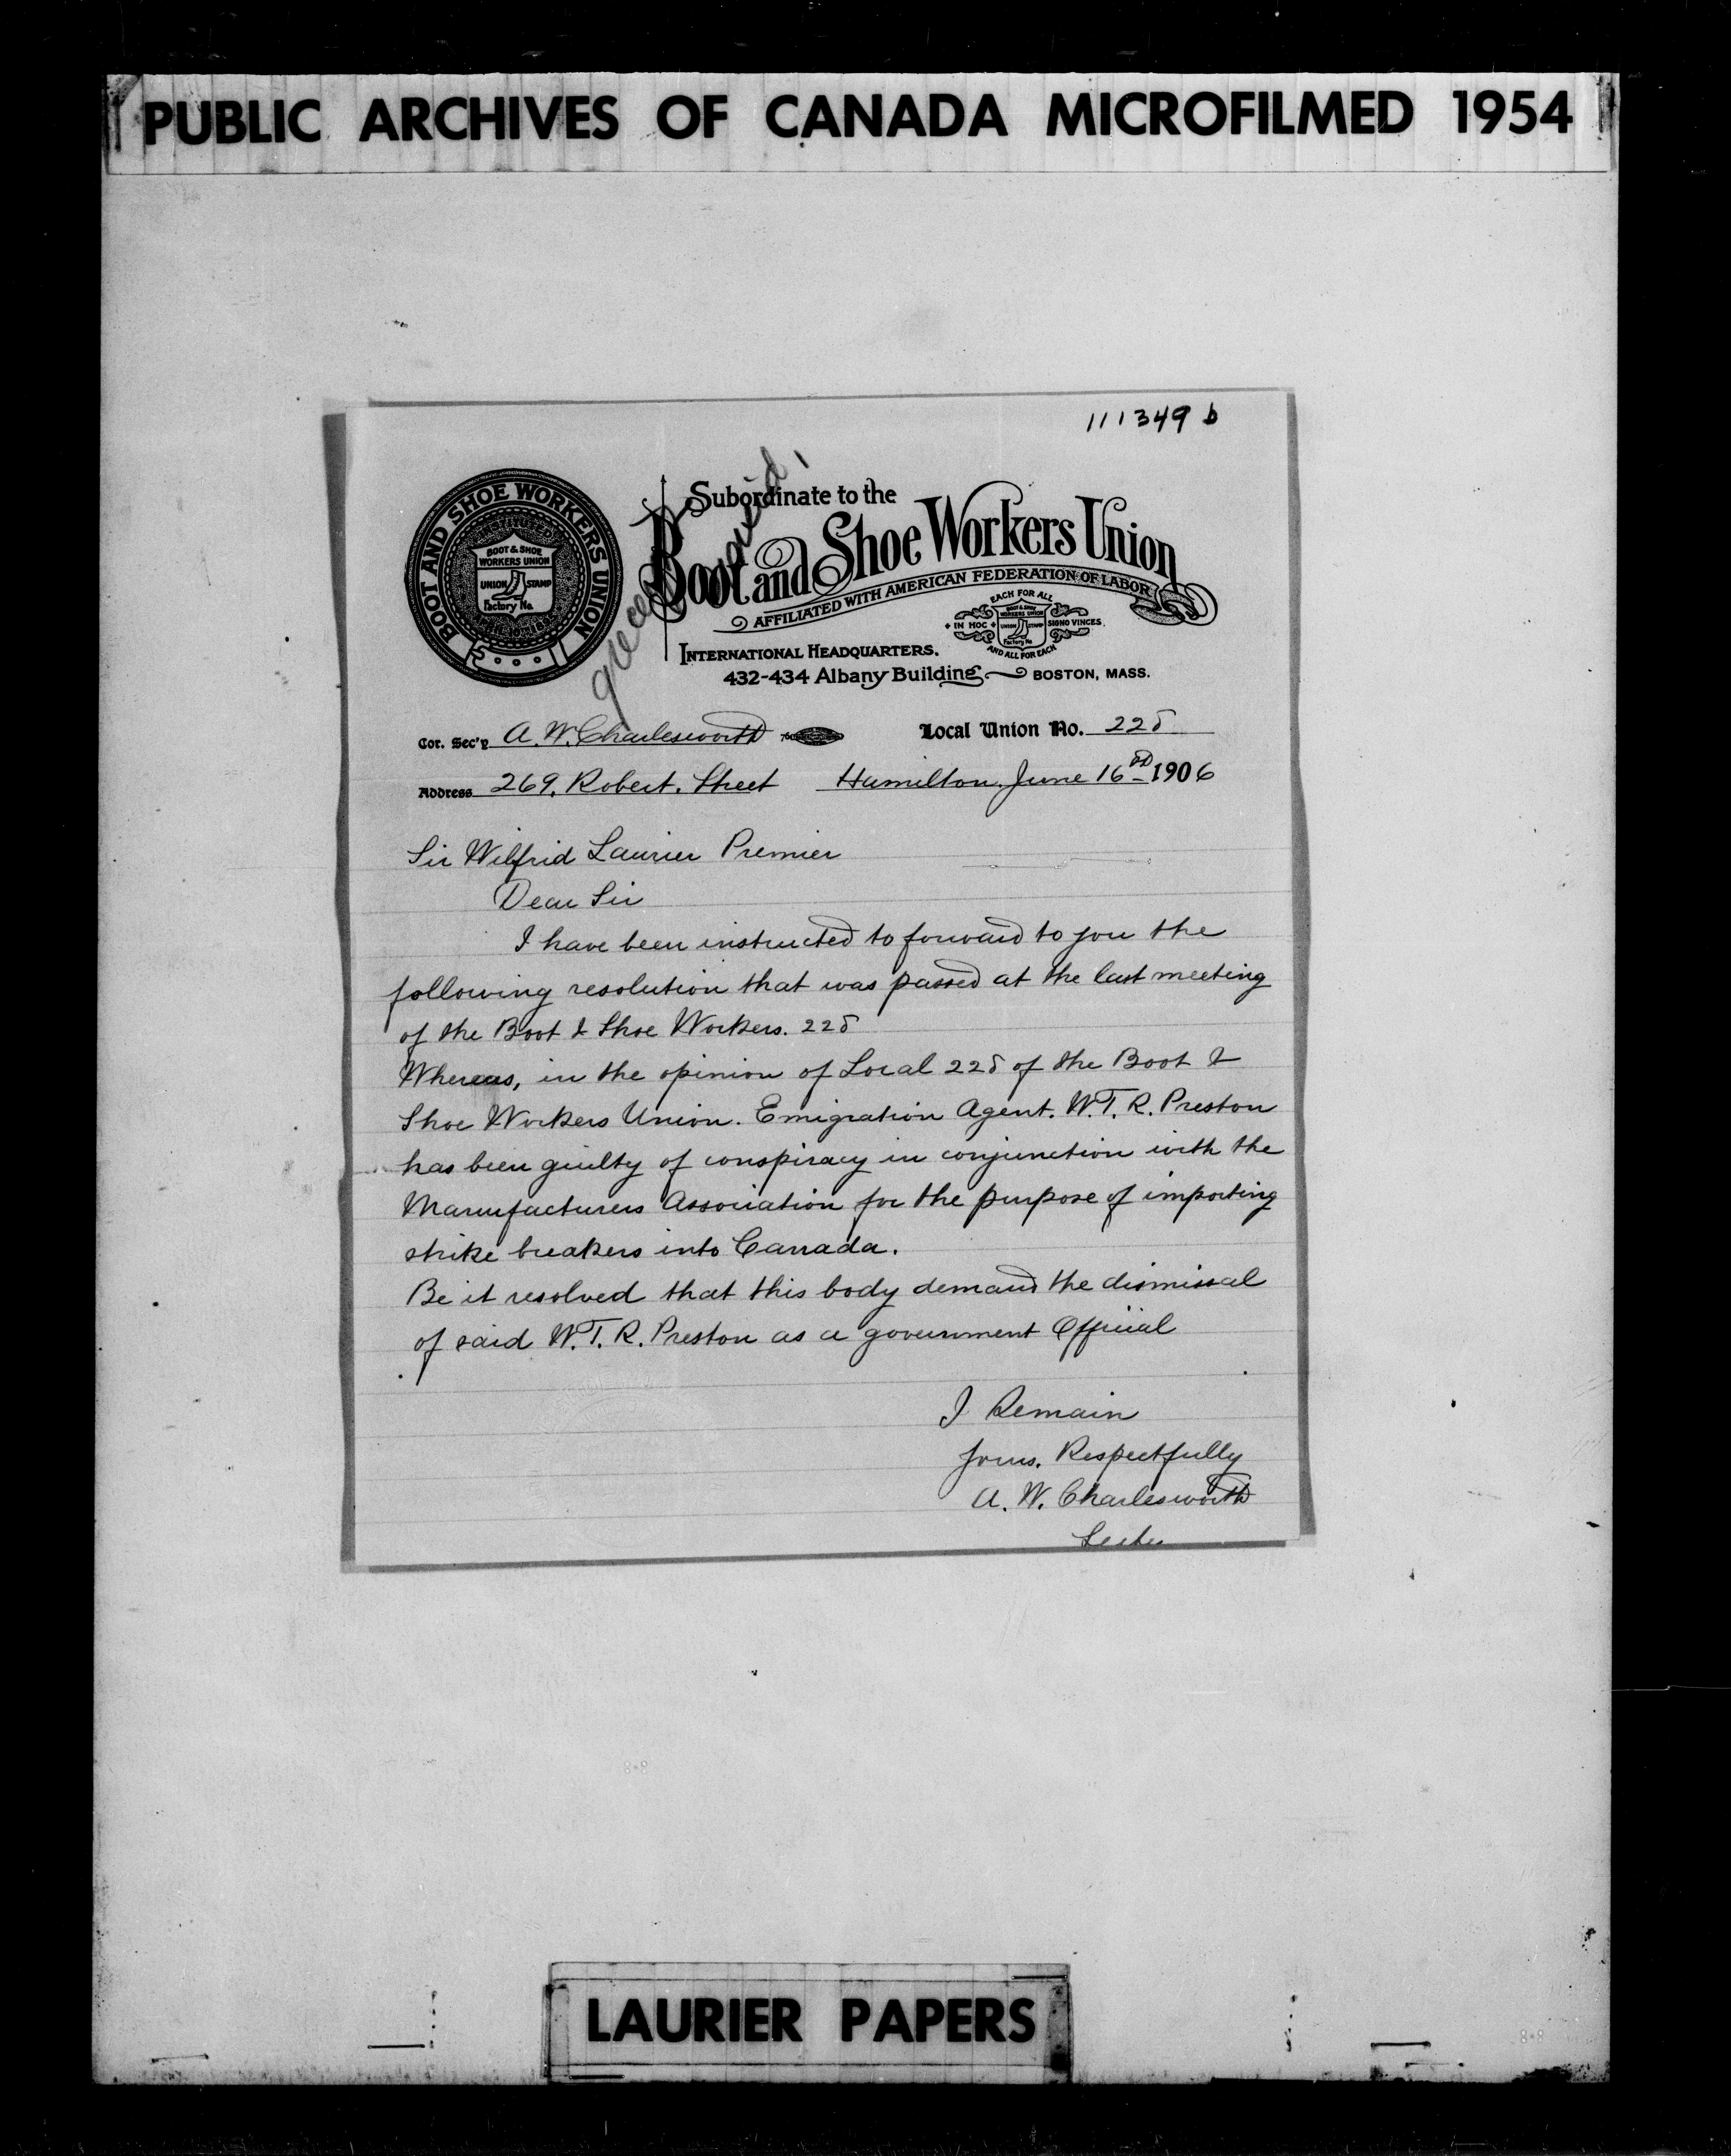 PUBLIC ARCHIVES OF CANADA MICROFILMED 1954
111349 b
BOOT AND SHOE WORKERS UNION
INSTITUTED
BOOT & SHOE
WORKERS UNION
UNION STAMP
Factory No.
Subordinate to the
Boot and Shoe Workers Union
AFFILIATED WITH AMERICAN FEDERATION OF LABOR
EACH FOR ALL
BOOT & SHOE
WORKERS UNION
IN HOC UNION STAMP SIGNO VINCES
Factory No
AND ALL FOR EACH
INTERNATIONAL HEADQUARTERS.
432-434 Albany Building BOSTON, MASS.
Cor. Sec'y A. W. Charlesworth Local Union No. 228
Address 269, Robert. Street Hamilton. June 16th 1906
Sir Wilfrid Laurier Premier
Dear Sir
I have been instructed to forward to you the
following resolution that was passed at the last meeting
of the Boot & Shoe Workers. 228
Whereas, in the opinion of Local 228 of the Boot &
Shoe Workers Union. Emigration Agent. W. T. R. Preston
has been guilty of conspiracy in conjunction with the
Manufacturers Association for the purpose of importing
strike breakers into Canada.
Be it resolved that this body demand the dismissal
of said W. T. R. Preston as a government Official
I Remain
Yours. Respectfully
A. W. Charlesworth
LAURIER PAPERS